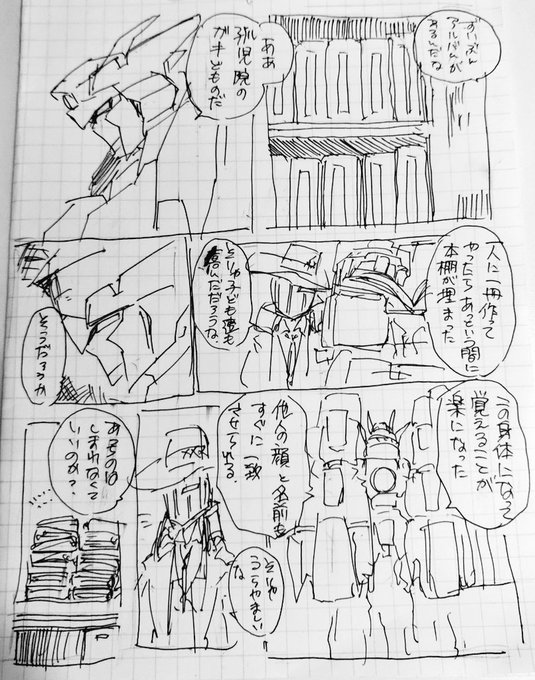 ずいぶん
アルバムが
あるんだな
ああ
孤児院の
ガキどものだ
人に一冊作って
やったらあっという間に
本棚が埋まった
そりゃ子ども達も
喜んだだろうな
そうだろうか
この身体になって
覚えることが
楽になった
他人の顔と名前も
すぐに一致
させられる
そりゃ
うらやましい
な
あっちのは
しまわれなくて
いいのか?